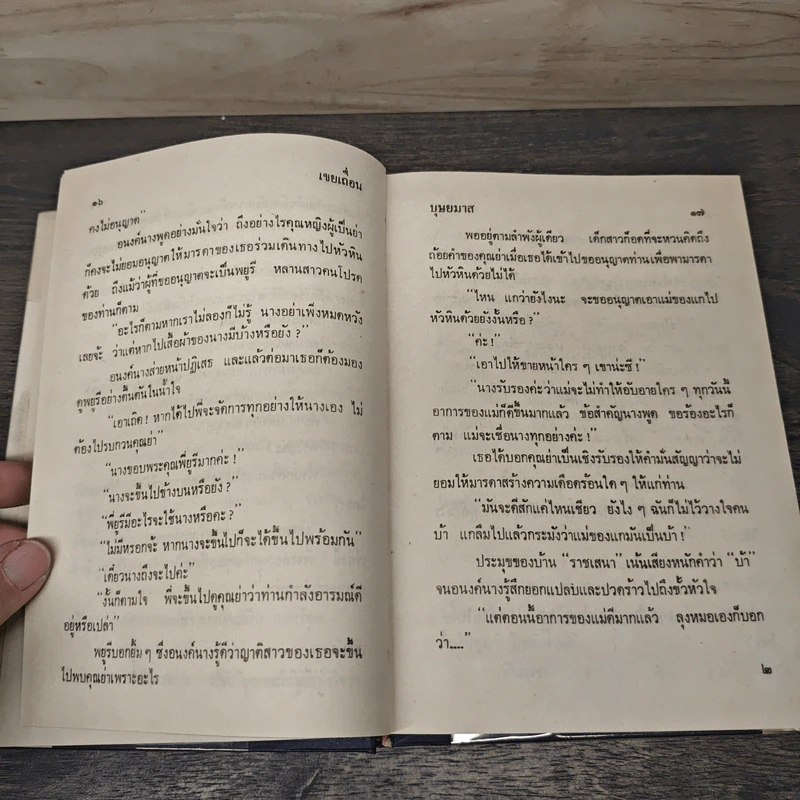 ๑๖
เขยเถื่อน
คงไม่อนุญาต"
อนงค์นางพูดอย่างมั่นใจว่า ถึงอย่างไรคุณหญิงผู้เป็นย่า
ก็คงจะไม่ยอมอนุญาตให้มารดาของเธอร่วมเดินทางไปหัวหิน
ด้วย ถึงแม้ว่าผู้ที่ขออนุญาตจะเป็นพยูรี หลานสาวคนโปรด
ของท่านก็ตาม
"อะไรก็ตามหากเราไม่ลองก็ไม่รู้ นางอย่าเพิ่งหมดหวัง
เลยจ้ะ ว่าแต่หากไปเสื้อผ้าของนางมีบ้างหรือยัง ?"
อนงค์นางส่ายหน้าปฏิเสธ และแล้วต่อมาเธอก็ต้องมอง
ดูพยูรีอย่างตื้นตันในน้ำใจ
"เอาเถิด ! หากได้ไปพี่จะจัดการทุกอย่างให้นางเอง ไม่
ต้องไปรบกวนคุณย่า"
"นางขอบพระคุณพี่ยูรีมากค่ะ !"
"นางจะขึ้นไปข้างบนหรือยัง ?"
"พี่ยูรีมีอะไรจะใช้นางหรือคะ ?"
"ไม่มีหรอกจ้ะ หากนางจะขึ้นไปก็จะได้ขึ้นไปพร้อมกัน"
"เดี๋ยวนางถึงจะไปค่ะ"
"งั้นก็ตามใจ พี่จะขึ้นไปดูคุณย่าว่าท่านกำลังอารมณ์ดี
อยู่หรือเปล่า"
พยูรีบอกยิ้ม ๆ ซึ่งอนงค์นางรู้ดีว่าญาติสาวของเธอจะขึ้น
ไปพบคุณย่าเพราะอะไร
บุษยมาส
๑๗
พออยู่ตามลำพังผู้เดียว เด็กสาวก็อดที่จะหวนคิดถึง
ถ้อยคำของคุณย่าเมื่อเธอได้เข้าไปขออนุญาตท่านเพื่อพามารดา
ไปหัวหินด้วยไม่ได้
"ไหน แกว่ายังไงนะ จะขออนุญาตเอาแม่ของแกไป
หัวหินด้วยยังงั้นหรือ ?"
"ค่ะ !"
"เอาไปให้ขายหน้าใคร ๆ เขาน่ะซี !"
"นางรับรองค่ะว่าแม่จะไม่ทำให้อับอายใคร ๆ ทุกวันนี้
อาการของแม่ก็ดีขึ้นมากแล้ว ข้อสำคัญนางพูด ขอร้องอะไรก็
ตาม แม่จะเชื่อนางทุกอย่างค่ะ !"
เธอได้บอกคุณย่าเป็นเชิงรับรองให้คำมั่นสัญญาว่าจะไม่
ยอมให้มารดาสร้างความเดือดร้อนใด ๆ ให้แก่ท่าน
"มันจะดีสักแค่ไหนเชียว ยังไง ๆ ฉันก็ไม่ไว้วางใจคน
บ้า แกลืมไปแล้วกระมังว่าแม่ของแกมันเป็นบ้า !"
ประมุขของบ้าน "ราชเสนา" เน้นเสียงหนักคำว่า "บ้า"
จนอนงค์นางรู้สึกยอกแปลบและปวดร้าวไปถึงขั้วหัวใจ
"แต่ตอนนี้อาการของแม่ดีมากแล้ว ลุงหมอเองก็บอก
ว่า...."
๒